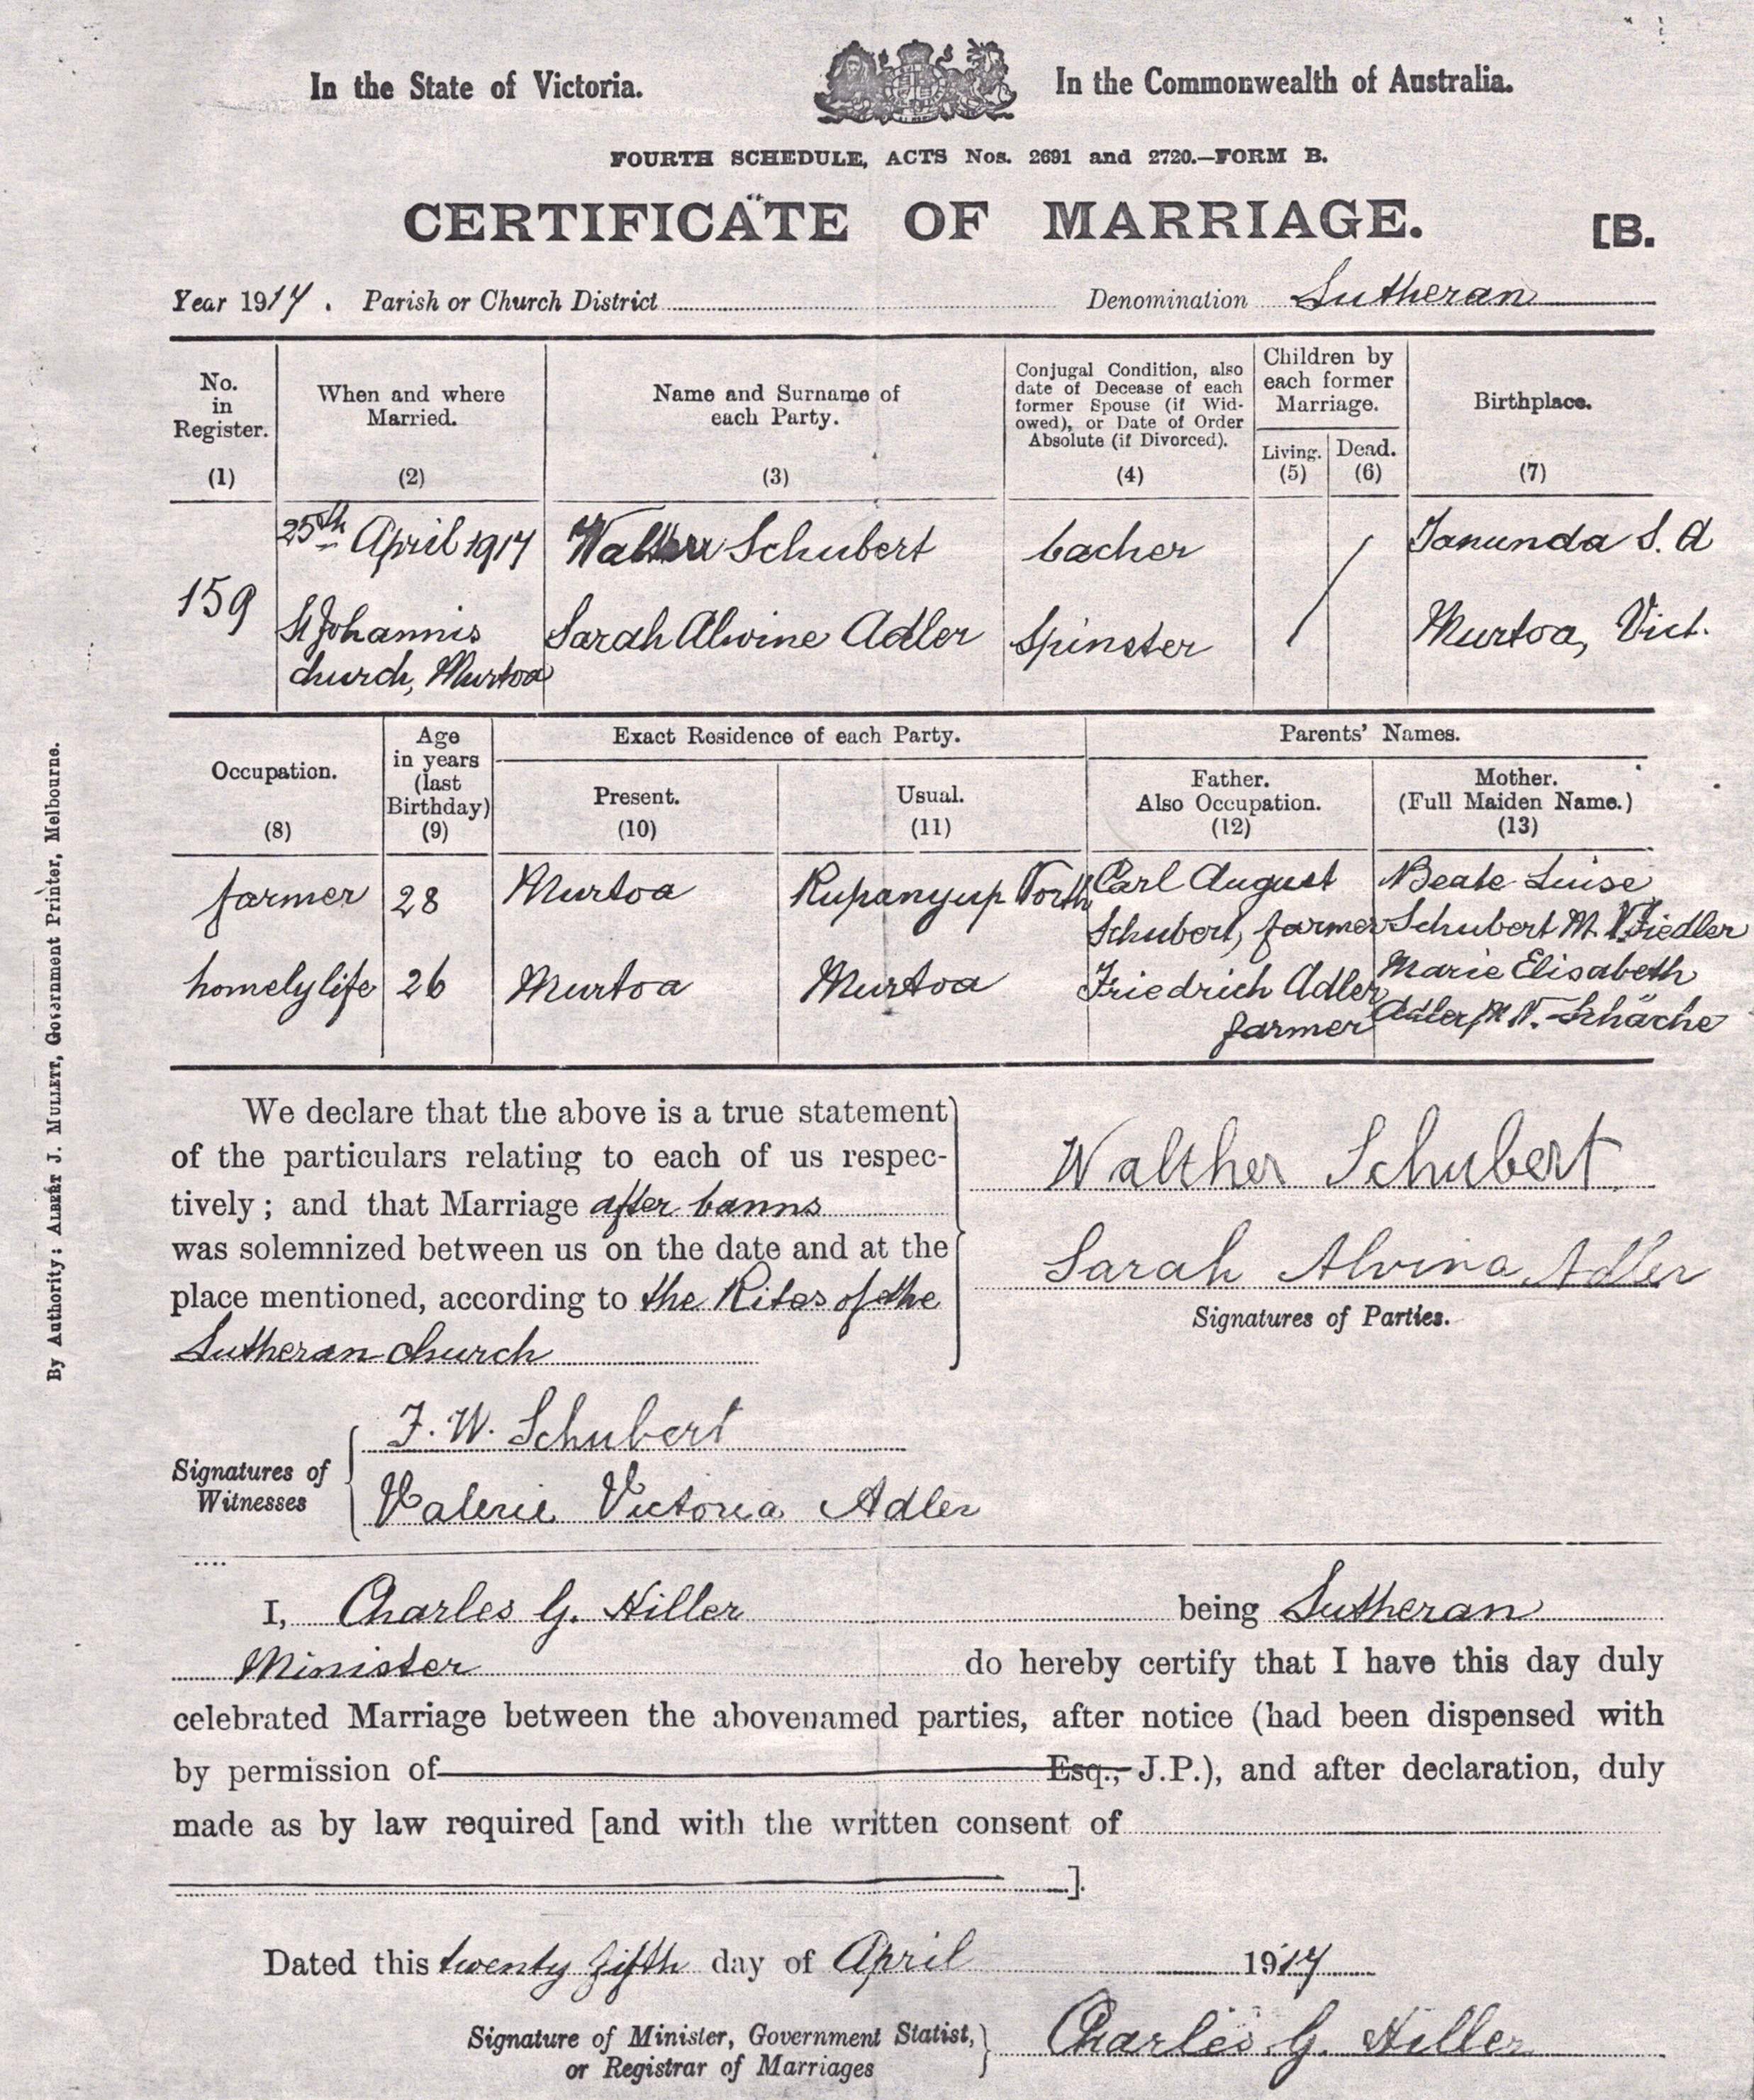 In the State of Victoria. In the Commonwealth of Australia.
FOURTH SCHEDULE, ACTS Nos. 2691 and 2720.—FORM B.
CERTIFICATE OF MARRIAGE. [B.
Year 1917. Parish or Church District Denomination Lutheran
No. in Register. (1)
When and where Married. (2)
Name and Surname of each Party. (3)
Conjugal Condition, also date of Decease of each former Spouse (if Widowed), or Date of Order Absolute (if Divorced). (4)
Children by each former Marriage.
Living. (5)
Dead. (6)
Birthplace. (7)
159
25th April 1917
St Johannis
church, Murtoa
Walther Schubert
Sarah Alwine Adler
bacher
Spinster
Tanunda S. A
Murtoa, Vict.
Occupation. (8)
Age in years (last Birthday) (9)
Exact Residence of each Party.
Present. (10)
Usual. (11)
Parents' Names.
Father. Also Occupation. (12)
Mother. (Full Maiden Name.) (13)
farmer 28 Murtoa Rupanyup North
Carl August
Schubert, farmer
Beate Luise
Schubert M. N. Fiedler
homely life 26 Murtoa Murtoa
Friedrich Adler
farmer
Marie Elisabeth
Adler, M N. Schäche
We declare that the above is a true statement
of the particulars relating to each of us respec-
tively; and that Marriage after banns
was solemnized between us on the date and at the
place mentioned, according to the Rites of the
Lutheran church
Walther Schubert
Sarah Alvina Adler
Signatures of Parties.
Signatures of Witnesses
F. W. Schubert
Valerie Victoria Adler
I, Charles G. Hiller being Lutheran
Minister do hereby certify that I have this day duly
celebrated Marriage between the abovenamed parties, after notice (had been dispensed with
by permission of Esq., J.P.), and after declaration, duly
made as by law required [and with the written consent of
].
Dated this twenty fifth day of April 1917
Signature of Minister, Government Statist,
or Registrar of Marriages
Charles G. Hiller
By Authority: ALBERT J. MULLETT, Government Printer, Melbourne.